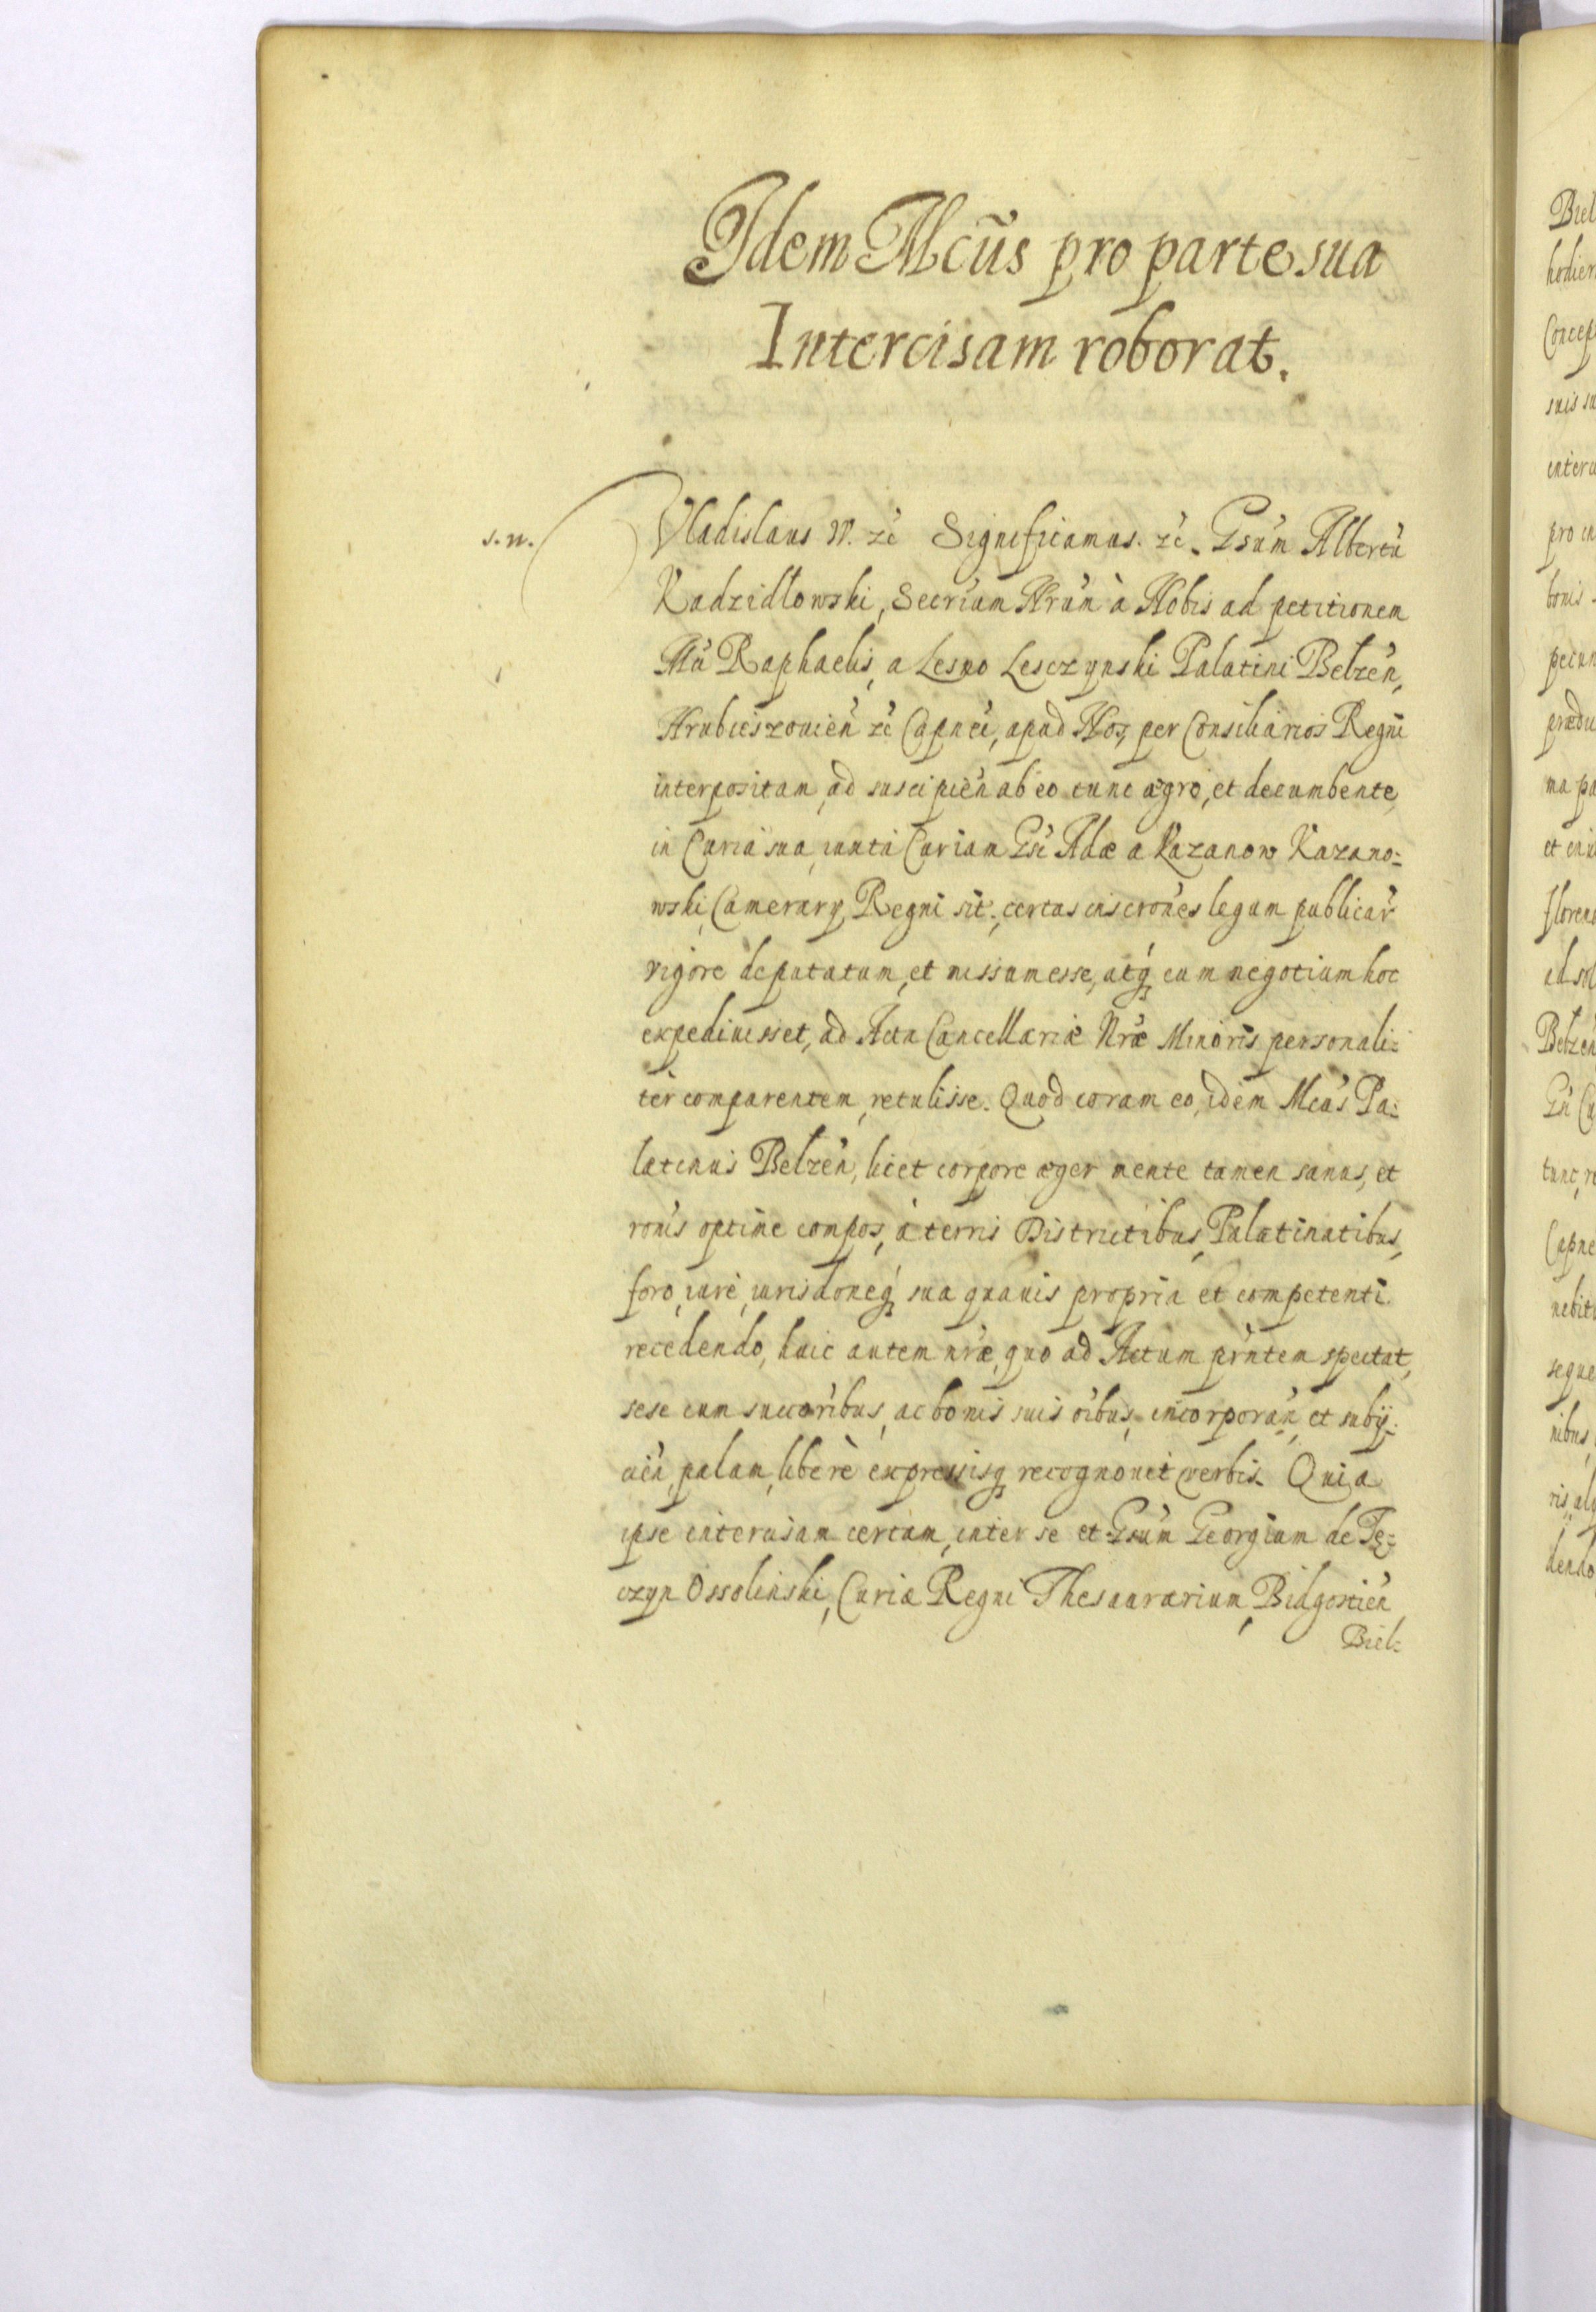 Idem Mcūs pro parte sua
Intercisam roborat.
s. n.
Vladislaus IV. zc̃ Significamus. zc̃. Gsum̃ Albertũ
Kadzidłowski, Secriũm Nrum̃ à Nobis ad petitionem
Mci Raphaelis, a Lesno Lesczynski Palatini Belzeñ,
Hrubieszouień zc̃ Capnei, apud Nos, per Consiliarios Regni
interpositam, ad suscipień ab eo tunc ægro, et decumbente,
in Curia sua, iuxta Curiam Gsi Adæ a Kazanow Kazano=
wski, Camerary Regni sit:, certas inscrones legum publicar̃
rigore deputatum, et missum esse, atq̃ cum negotium hoc
expediuisset, ad Acta Cancellariæ Nræ Minoris personali=
ter comparentem, retulisse. Quod coram eo, idem Mcus Pa=
latinus Belzeñ, licet corpore æger mente tamen sanus, et
ronis optime compos, à terris Districtibus, Palatinatibus,
foro, iure, iurisdoneq̃ sua quauis propria et competenti.
recedendo, huic autem nræ, quo ad Actum pñntem spectat,
sese cum succoribus, ac bonis suis oibus, incorporañ, et subij=
cień, palam, liberè expressisq̃ recognouit verbis. Quia
ipse intercisam certam, inter se et Gsum̃ Georgium de Tę=
czyn Ossolinski, Curiæ Regni Thesaurarium, Bidgostień
Biel=
Biel
Concep
pro in
pecun
et eius
Belzeñ
tunc, re
seque
nibus,
dendo